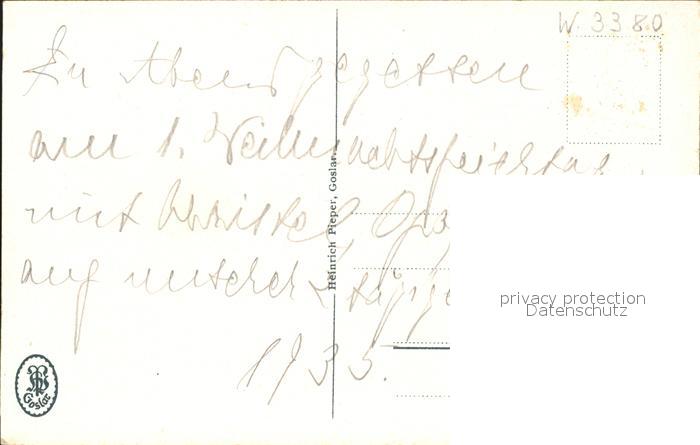 W. 3380
Zu Abend gegessen
am 1. Weihnachtsfeiertag
mit Christel,
auf unserer 2 tägige
1935.
Heinrich Pieper, Goslar.
Goslar
privacy protection
Datenschutz